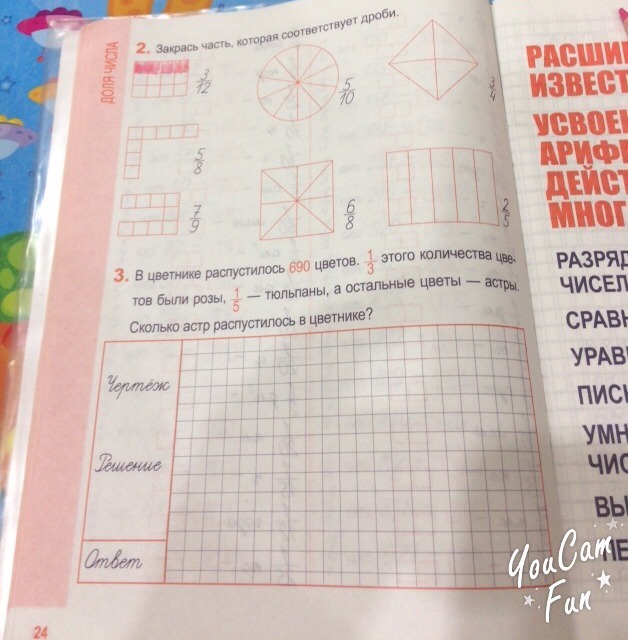 ДОЛЯ ЧИСЛА
2. Закрась часть, которая соответствует дроби.
3/12
5/10
3/4
5/8
7/9
6/8
2/5
3. В цветнике распустилось 690 цветов. 1/3 этого количества цве-
тов были розы, 1/5 — тюльпаны, а остальные цветы — астры.
Сколько астр распустилось в цветнике?
Чертёж
Решение
Ответ
24
РАСШИ
ИЗВЕСТ
УСВОЕН
АРИФМ
ДЕЙСТ
МНОГ
РАЗРЯД
ЧИСЕЛ
СРАВН
УРАВН
ПИСЬ
УМН
ЧИС
ВЫ
YouCam
Fun